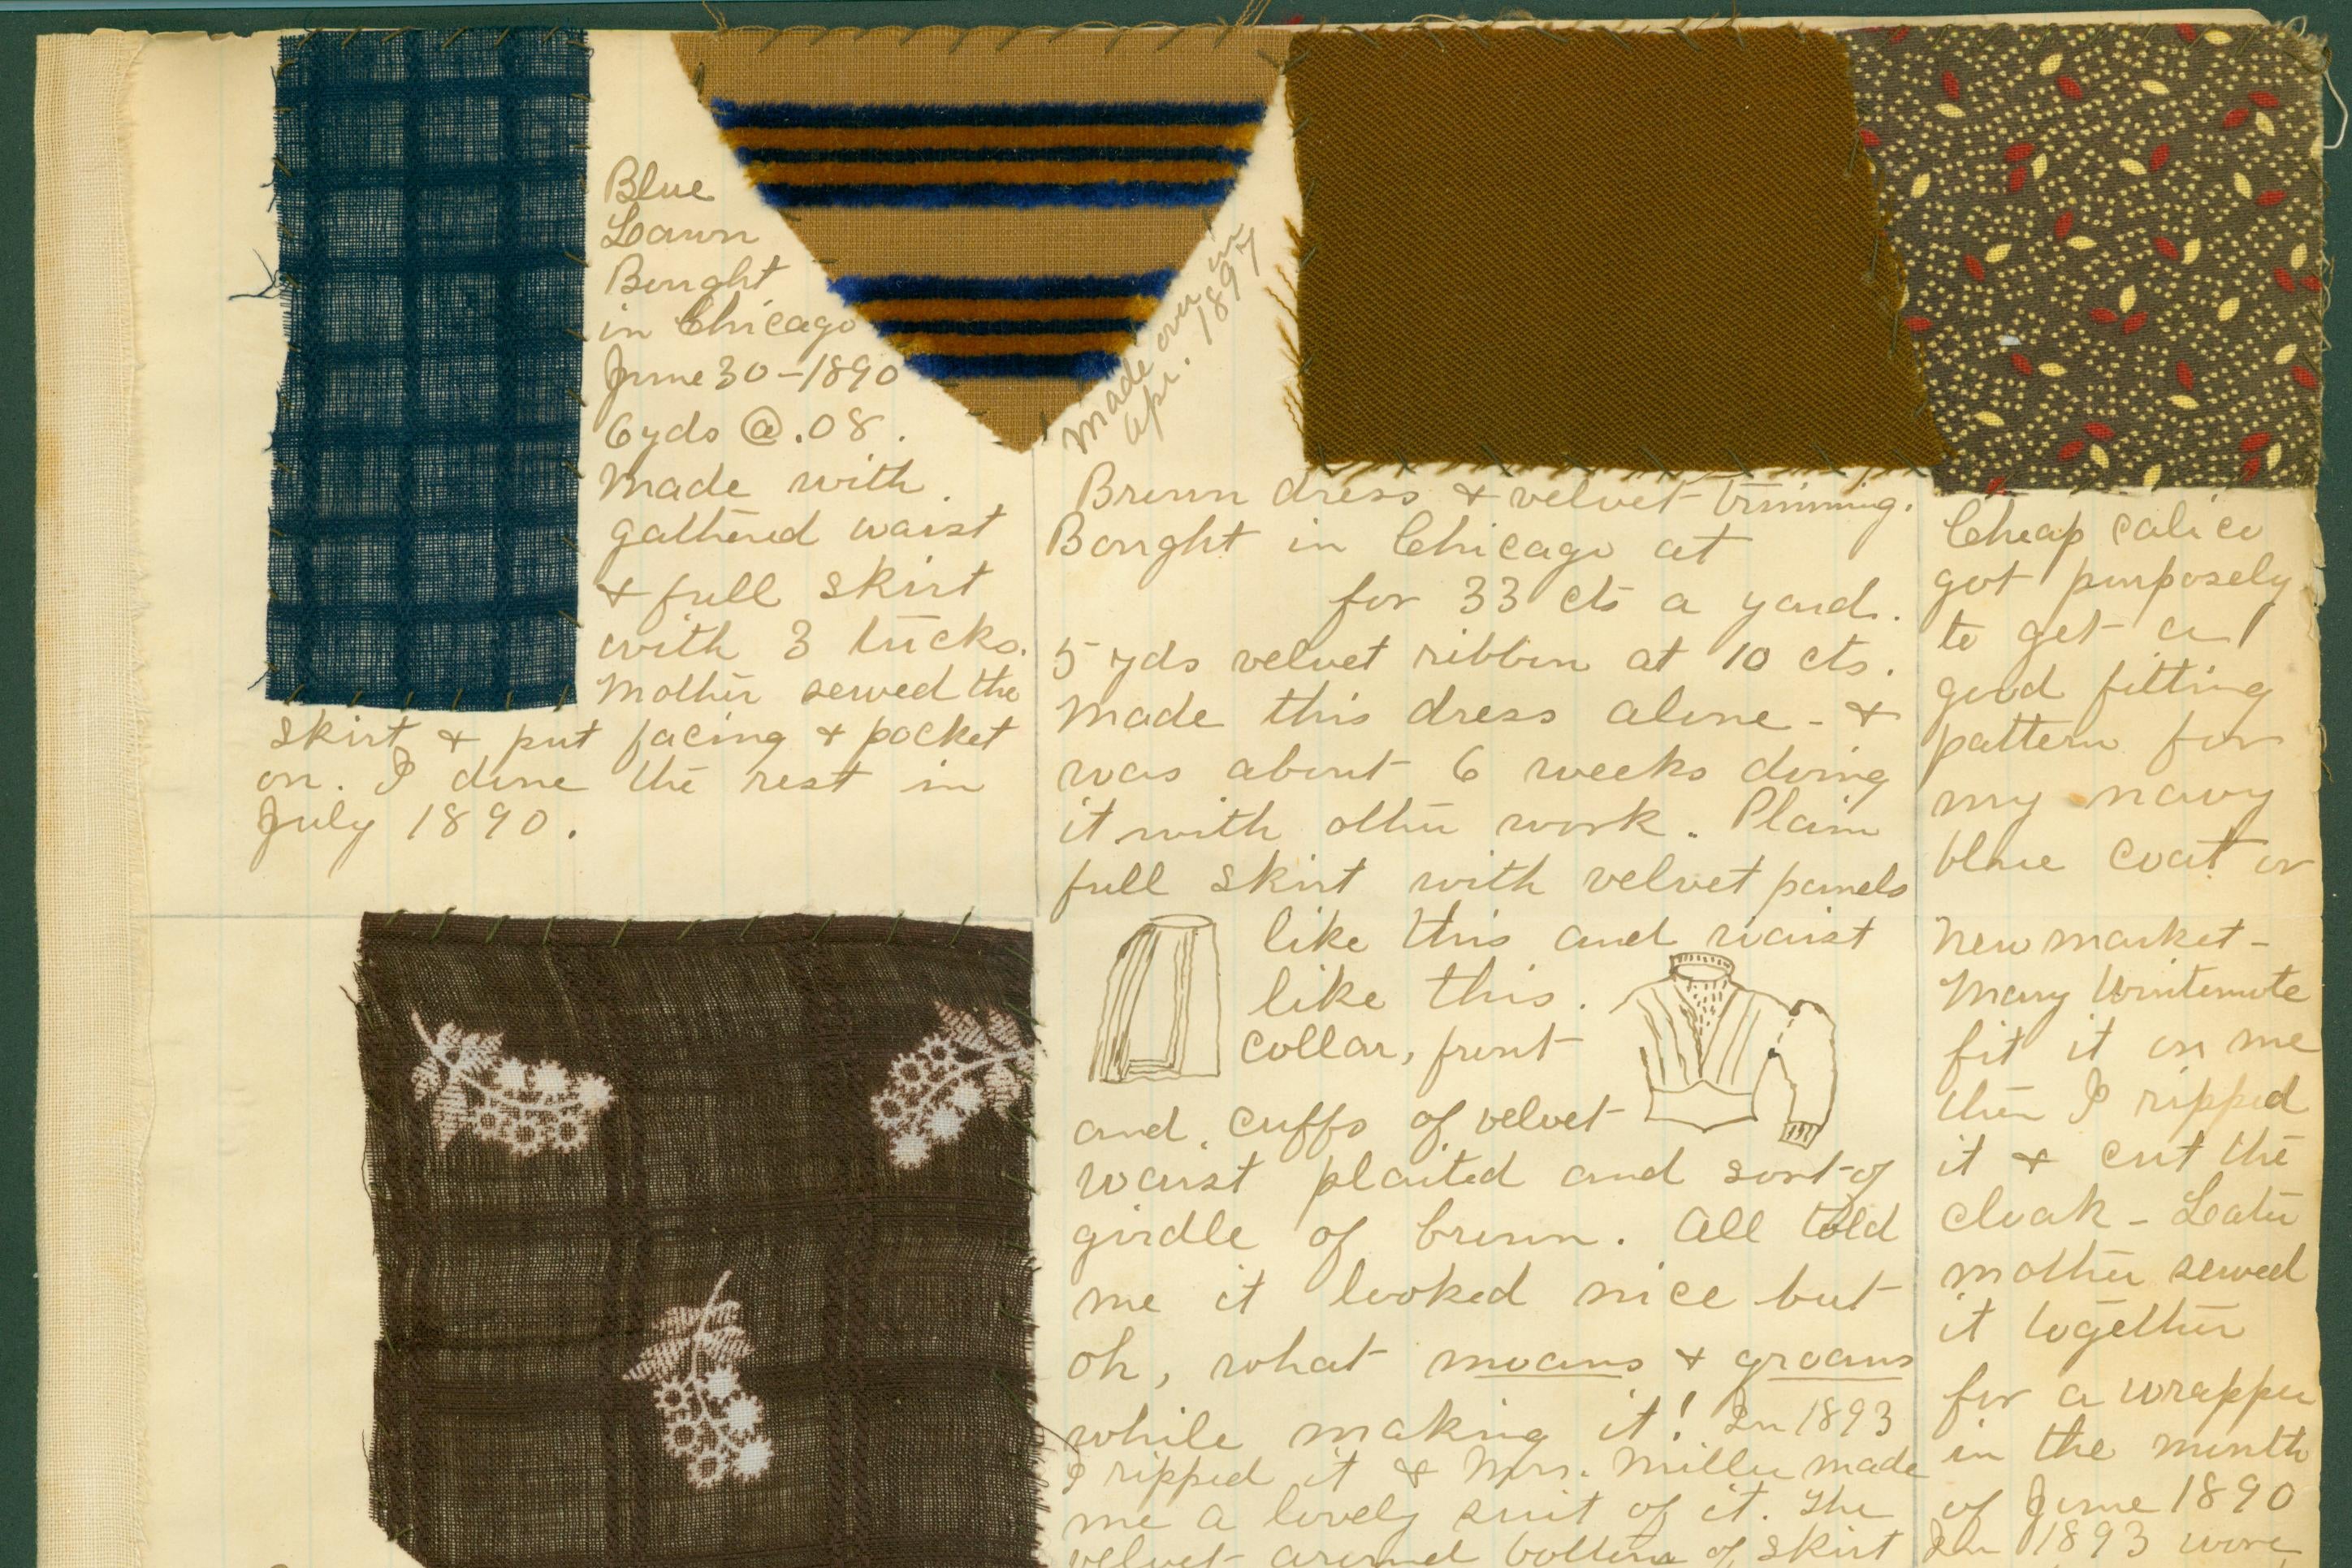 Blue
Lawn
Bought
in Chicago
June 30 - 1890
6 yds @ .08.
Made with
gathered waist
& full skirt
with 3 tucks.
Mother sewed the
skirt & put facing & pocket
on. I done the rest in
July 1890.
Made over in
Apr. 1897
Brown dress & velvet trimming.
Bought in Chicago at
for 33 cts a yard.
5 yds velvet ribbon at 10 cts.
Made this dress alone - &
was about 6 weeks doing
it with other work. Plain
full skirt with velvet panels
like this and waist
like this.
collar, front
and cuffs of velvet
waist plaited and sort of
girdle of brown. All told
me it looked nice but
oh, what moans & groans
while making it! In 1893
I ripped it & Mrs. Miller made
me a lovely suit of it. The
velvet around bottom of skirt
Cheap calico
got purposely
to get a
good fitting
pattern for
my navy
blue coat or
New market -
Mary Wintemute
fit it on me
then I ripped
it & cut the
cloak - Later
mother sewed
it together
for a wrapper
in the month
of June 1890
In 1893 wore